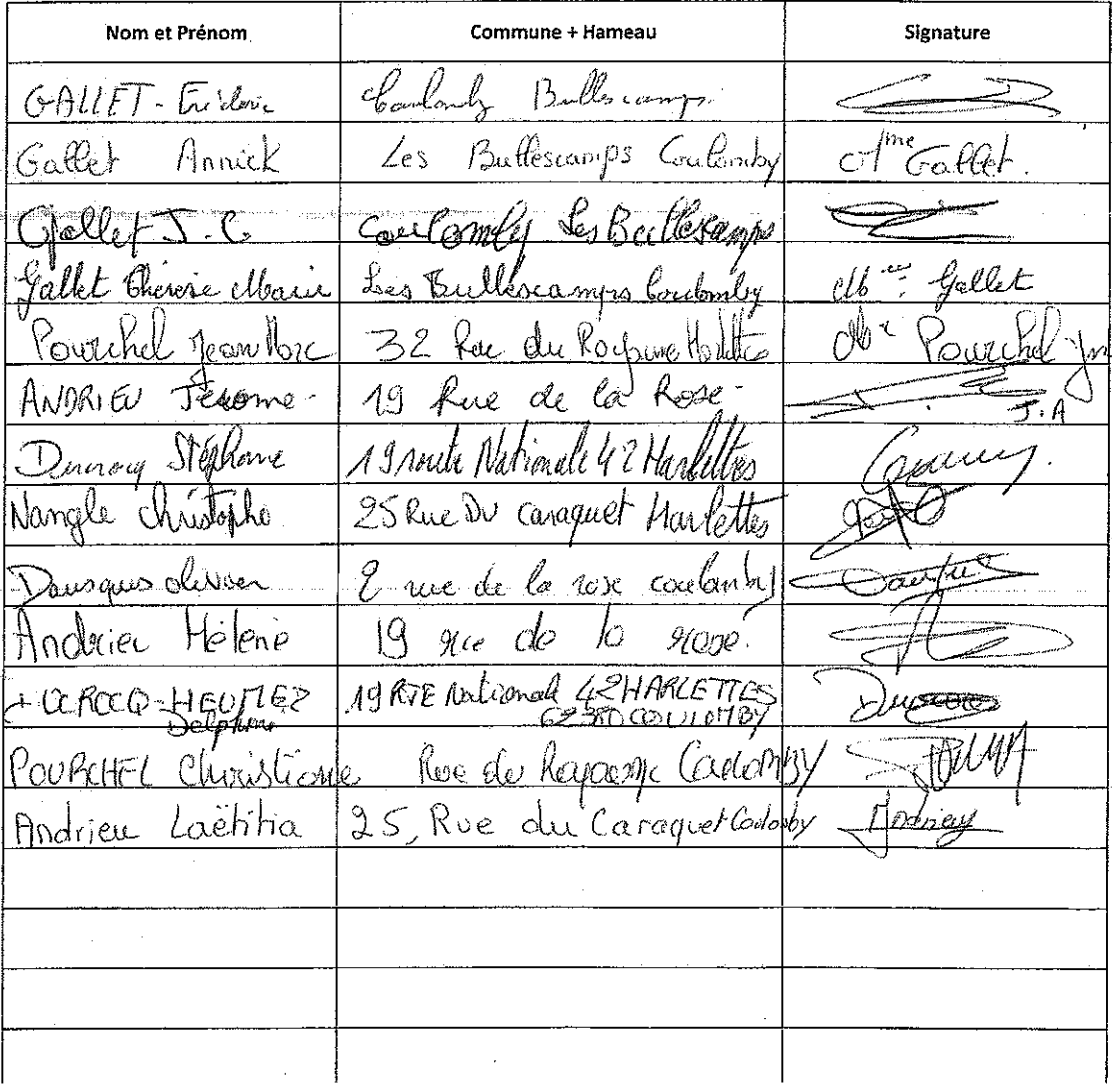 Nom et Prénom Commune + Hameau Signature
GALLET - Frédéric Coulomby Bullescamps
Gallet Annick Les Bullescamps Coulomby Mme Gallet.
Gallet J.C Coulomby Les Bullescamps
Gallet Thérèse Marie Les Bullescamps Coulomby Mme Gallet
Pourchel Jean Marc 32 Rue du Royaume Harlettes Mr Pourchel jm
ANDRIEU Jérome - 19 Rue de la Rose - J.A
Ducrocq Stéphane 19 route Nationale 42 Harlettes
Nangle Christophe 25 Rue Du caraquet Harlettes
Dausques olivier 2 rue de la rose coulomby
Andrieu Hélène 19 rue de la rose.
DUCROCQ-HEUMEZ 19 RTE National 42 HARLETTES
Delphine 62380 COULOMBY
POURCHEL Christiane Rue du Royaume Coulomby
Andrieu Laëtitia 25, Rue du Caraquet Coulomby Andrieu